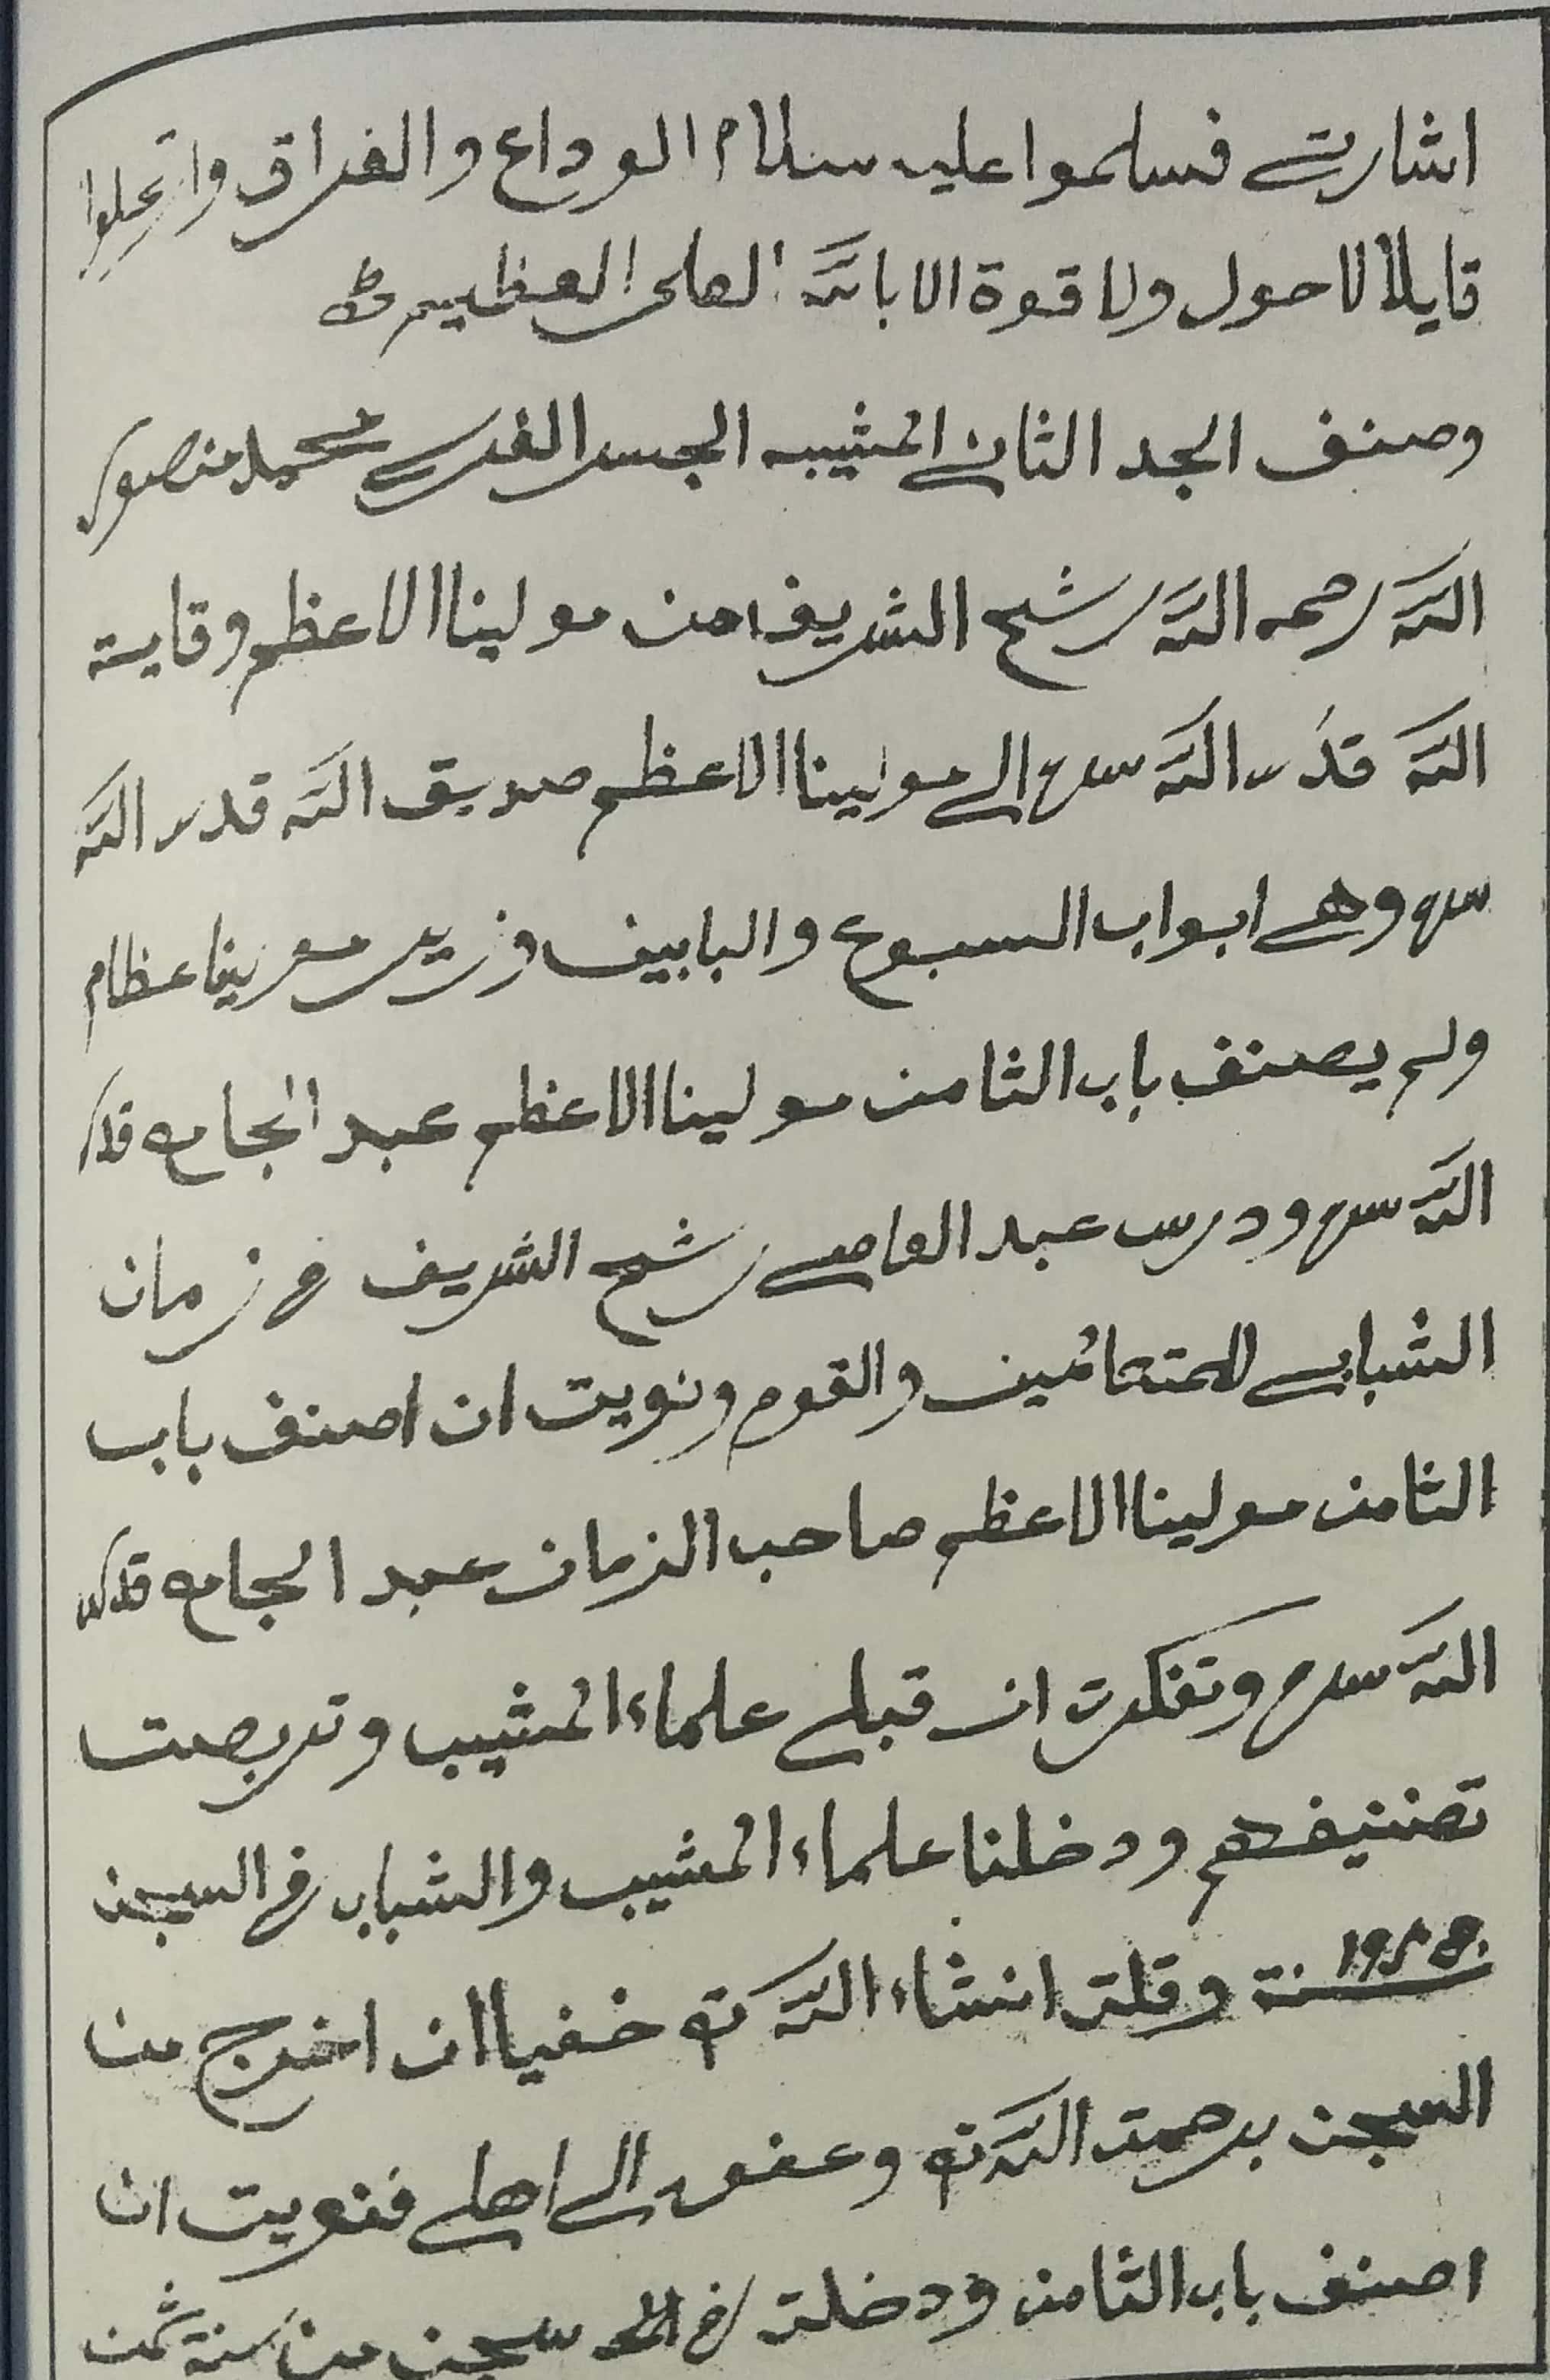 اشارت فسلموا عليه سلام الوداع والفراق وارتحلوا
قايلا لا حول ولا قوة الا بالله العلى العظيم
وصنف الجد الثانى المشيبه الجسر الفرسى محمد منصور
الله رحمه الله رشح الشريف من مولينا الاعظم وقاية
الله قدر الله سره الى مولينا الاعظم صديق الله قدر الله
سره وهى ابواب السبوع والبابين وزيدى مورينا عظام
ولم يصنف باب الثامن مولينا الاعظم عبد الجامع قدر
الله سره ودرس عبد العاصى رشح الشريف فى زمان
الشبابى للمتعالمين والقوم ونويت ان اصنف باب
الثامن مولينا الاعظم صاحب الزمان عبد الجامع قدر
الله سره وتفكرت ان قبلى علماء المشيب وتربصت
تصنيفهم ودخلنا علماء المشيب والشباب فى السجن
سنة وقلت انشاء الله تع خفيا ان اخرج من
السجن برحمت الله تع وعفوه الى اهلى فنويت ان
اصنف باب الثامن ودخلت فى سجن من سنة ثمن